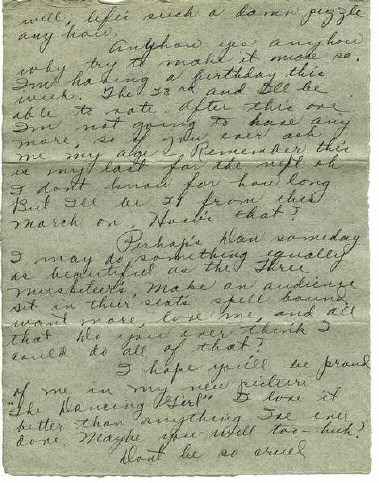 well, life's such a damn puzzle
any how.
Anyhow yes anyhow
why try to make it more so.
I'm having a birthday this
week. The 23rd and I'll be
able to vote. After this one
I'm not going to have any
more, so if you ever ask
me my age. Remember this
is my last for the next oh
I don't know for how long
But I'll be 21 from this
march on. How's that?
Perhap's Dan someday
I may do something equally
as beautiful as the Three
musketeer's. Make an audience
sit in their seats spell bound
want more, love me, and all
that Do you ever think I
could do all of that?
I hope you'll be proud
of me in my new picture
"The Dancing Girl" I love it
better than anything I've ever
done. Maybe you will too - huh?
Dont be so cruel